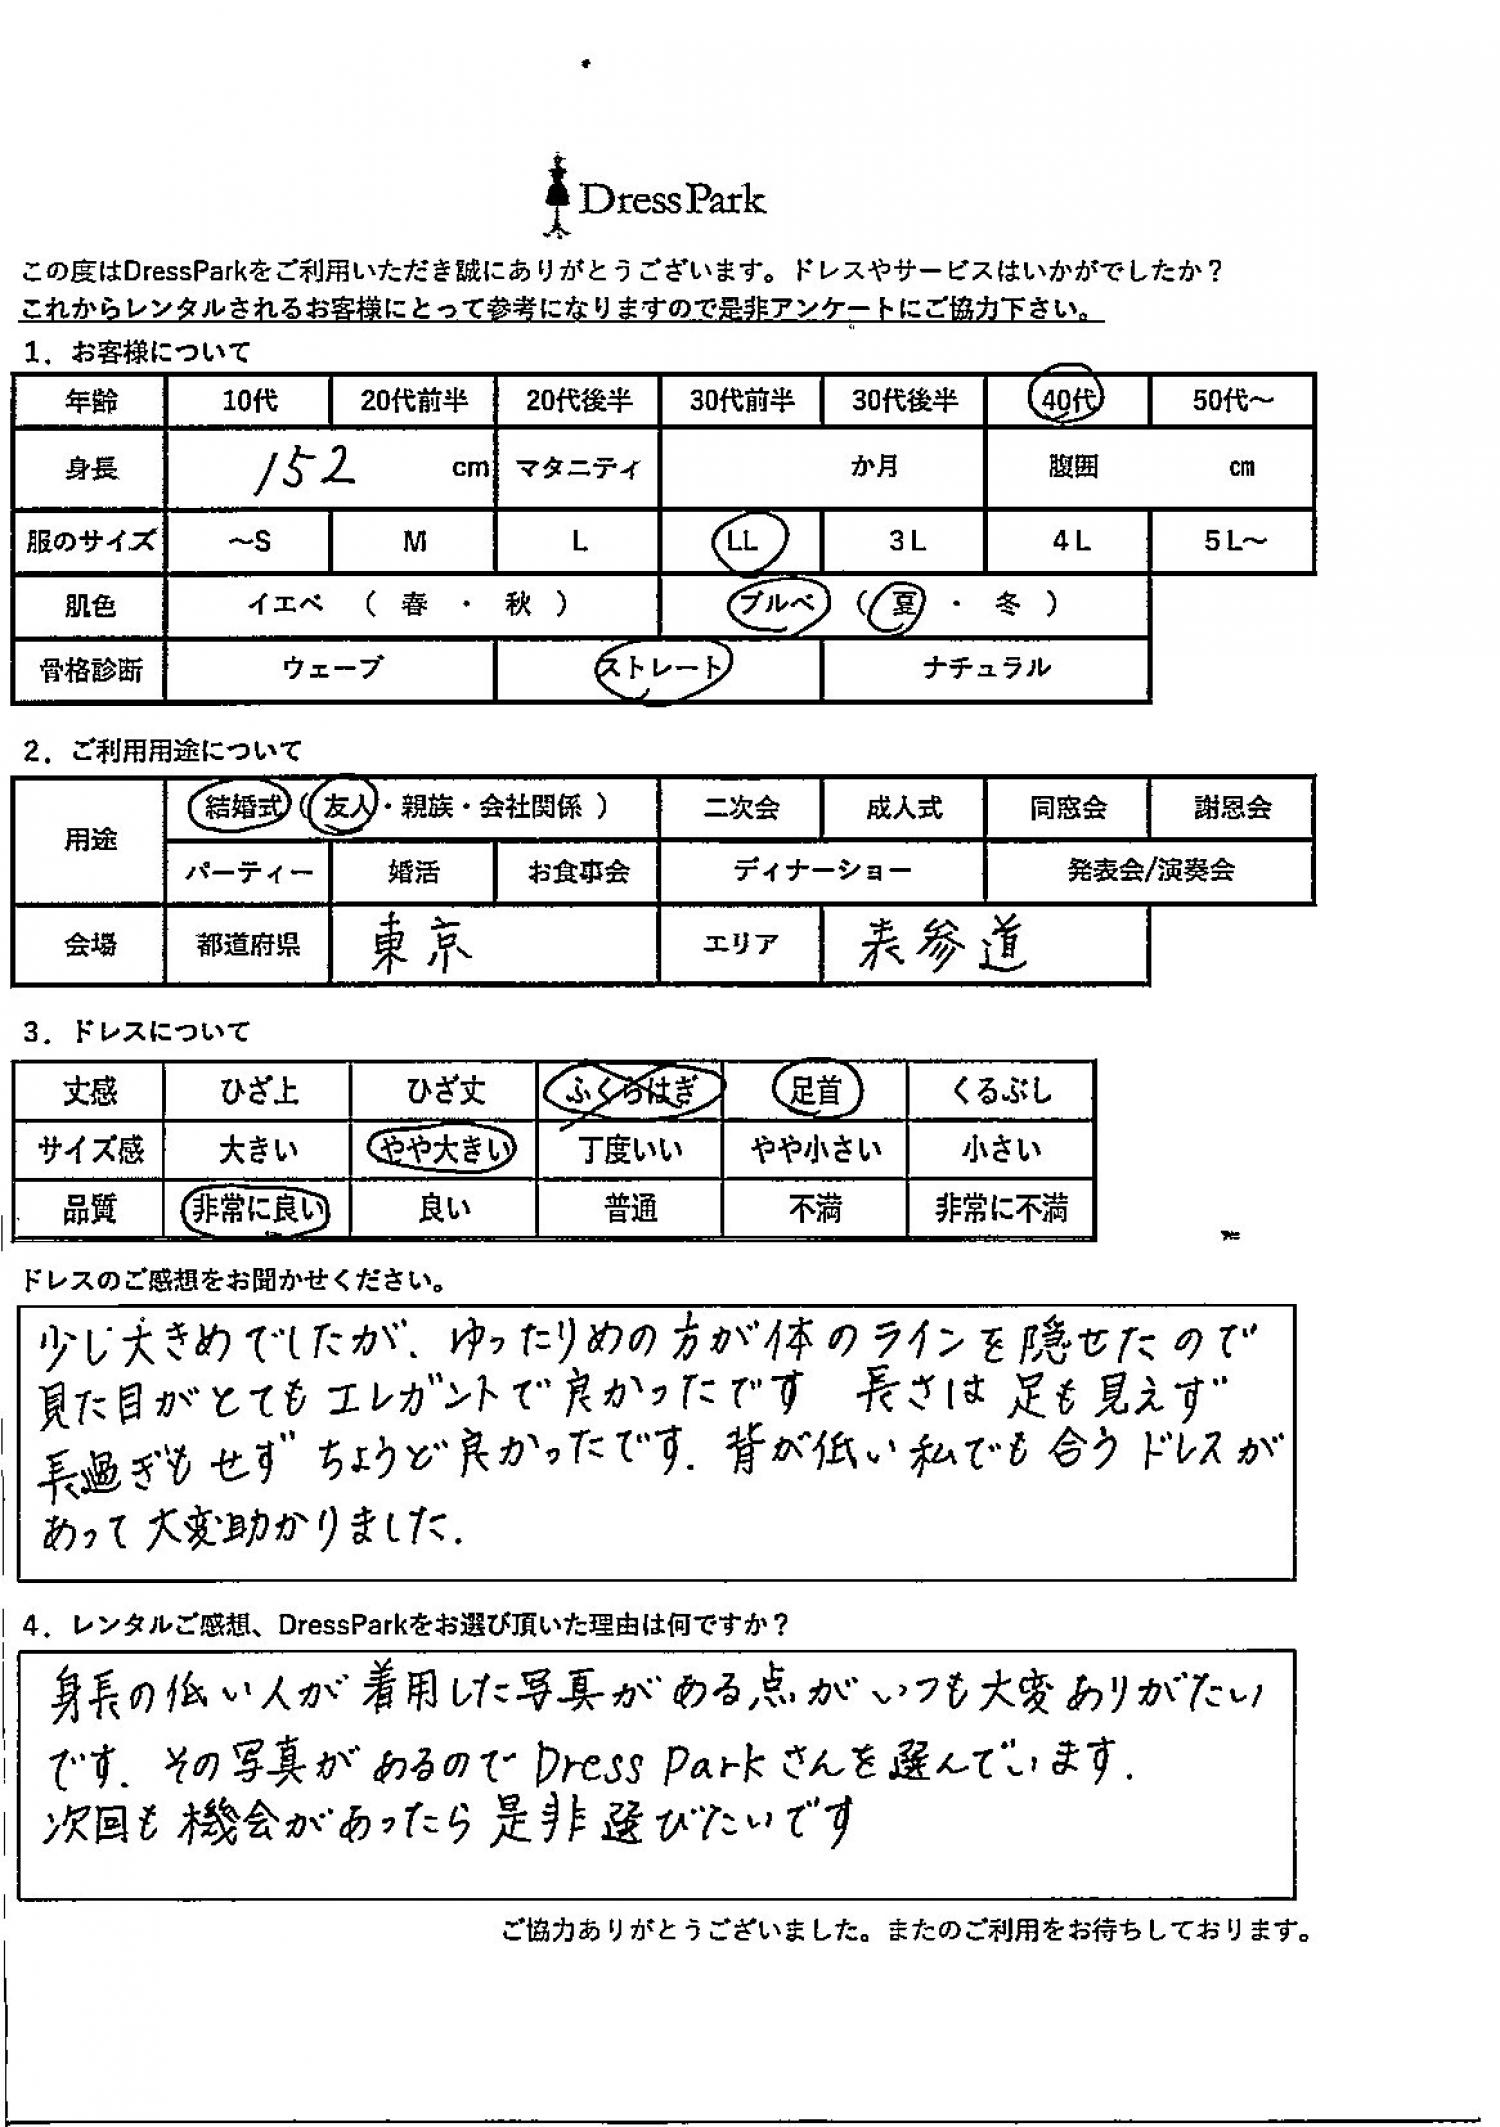 DressPark
この度はDressParkをご利用いただき誠にありがとうございます。ドレスやサービスはいかがでしたか？
これからレンタルされるお客様にとって参考になりますので是非アンケートにご協力下さい。
1．お客様について
年齢 10代 20代前半 20代後半 30代前半 30代後半 40代 50代～
身長 152 cm マタニティ か月 腹囲 cm
服のサイズ ～S M L LL 3L 4L 5L～
肌色 イエベ （ 春 ・ 秋 ） ブルベ （ 夏 ・ 冬 ）
骨格診断 ウェーブ ストレート ナチュラル
2．ご利用用途について
用途 結婚式（ 友人・親族・会社関係 ） 二次会 成人式 同窓会 謝恩会
パーティー 婚活 お食事会 ディナーショー 発表会/演奏会
会場 都道府県 東京 エリア 表参道
3．ドレスについて
丈感 ひざ上 ひざ丈 ふくらはぎ 足首 くるぶし
サイズ感 大きい やや大きい 丁度いい やや小さい 小さい
品質 非常に良い 良い 普通 不満 非常に不満
ドレスのご感想をお聞かせください。
少し大きめでしたが、ゆったりめの方が体のラインを隠せたので
見た目がとてもエレガントで良かったです 長さは足も見えず
長過ぎもせずちょうど良かったです．背が低い私でも合うドレスが
あって大変助かりました．
4．レンタルご感想、DressParkをお選び頂いた理由は何ですか？
身長の低い人が着用した写真がある点がいつも大変ありがたい
です．その写真があるのでDress Parkさんを選んでいます．
次回も機会があったら是非選びたいです
ご協力ありがとうございました。またのご利用をお待ちしております。